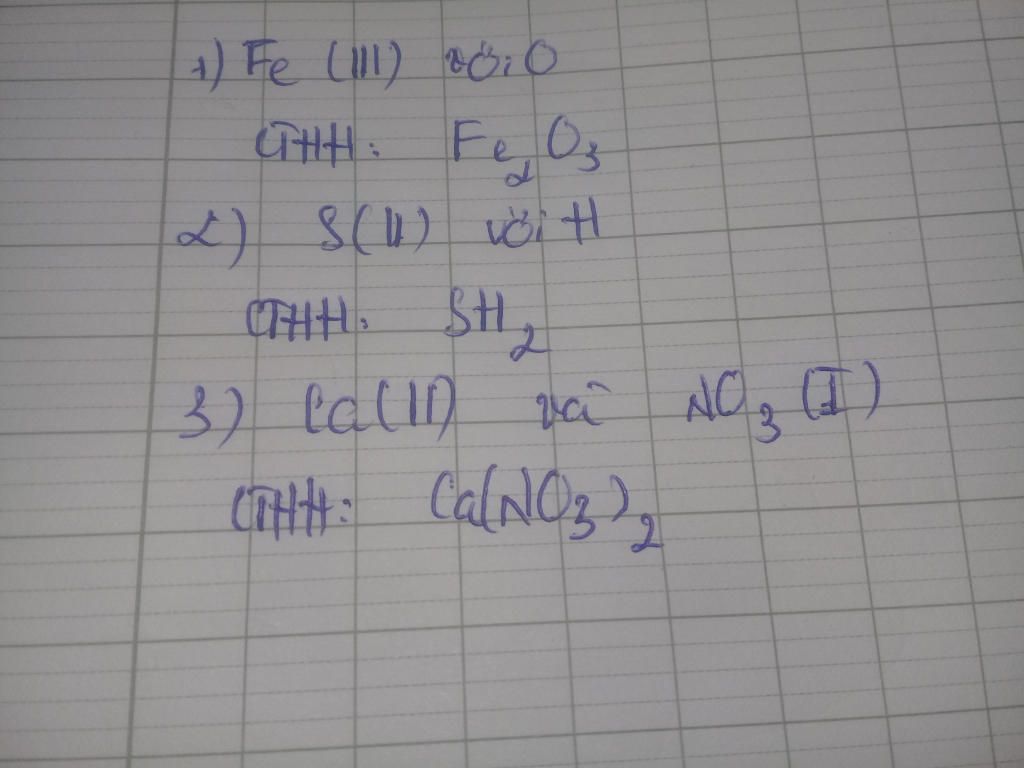 1) Fe (III) với O
CTHH: Fe₂O₃
2) S(II) với H
CTHH: SH₂
3) Ca(II) và NO₃ (I)
CTHH: Ca(NO₃)₂